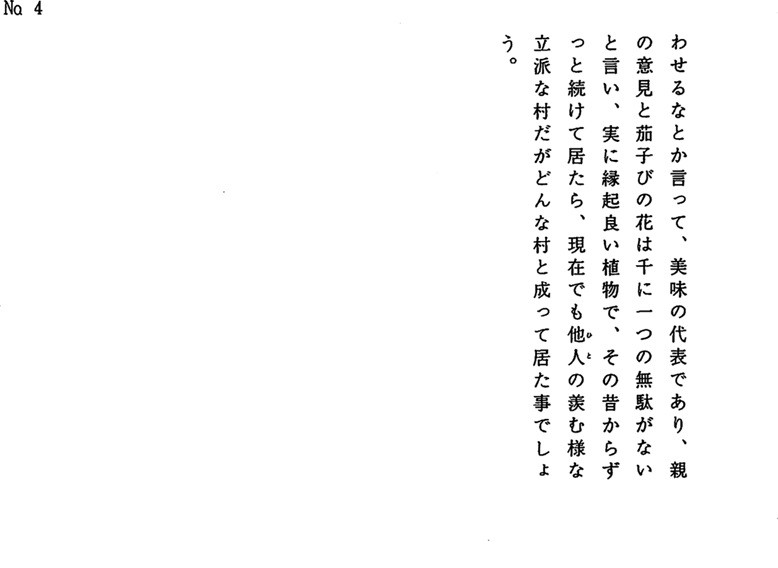 No 4
わせるなとか言って、美味の代表であり、親
の意見と茄子びの花は千に一つの無駄がない
と言い、実に縁起良い植物で、その昔からず
っと続けて居たら、現在でも他人の羨む様な
ひと
立派な村だがどんな村と成って居た事でしょ
う。